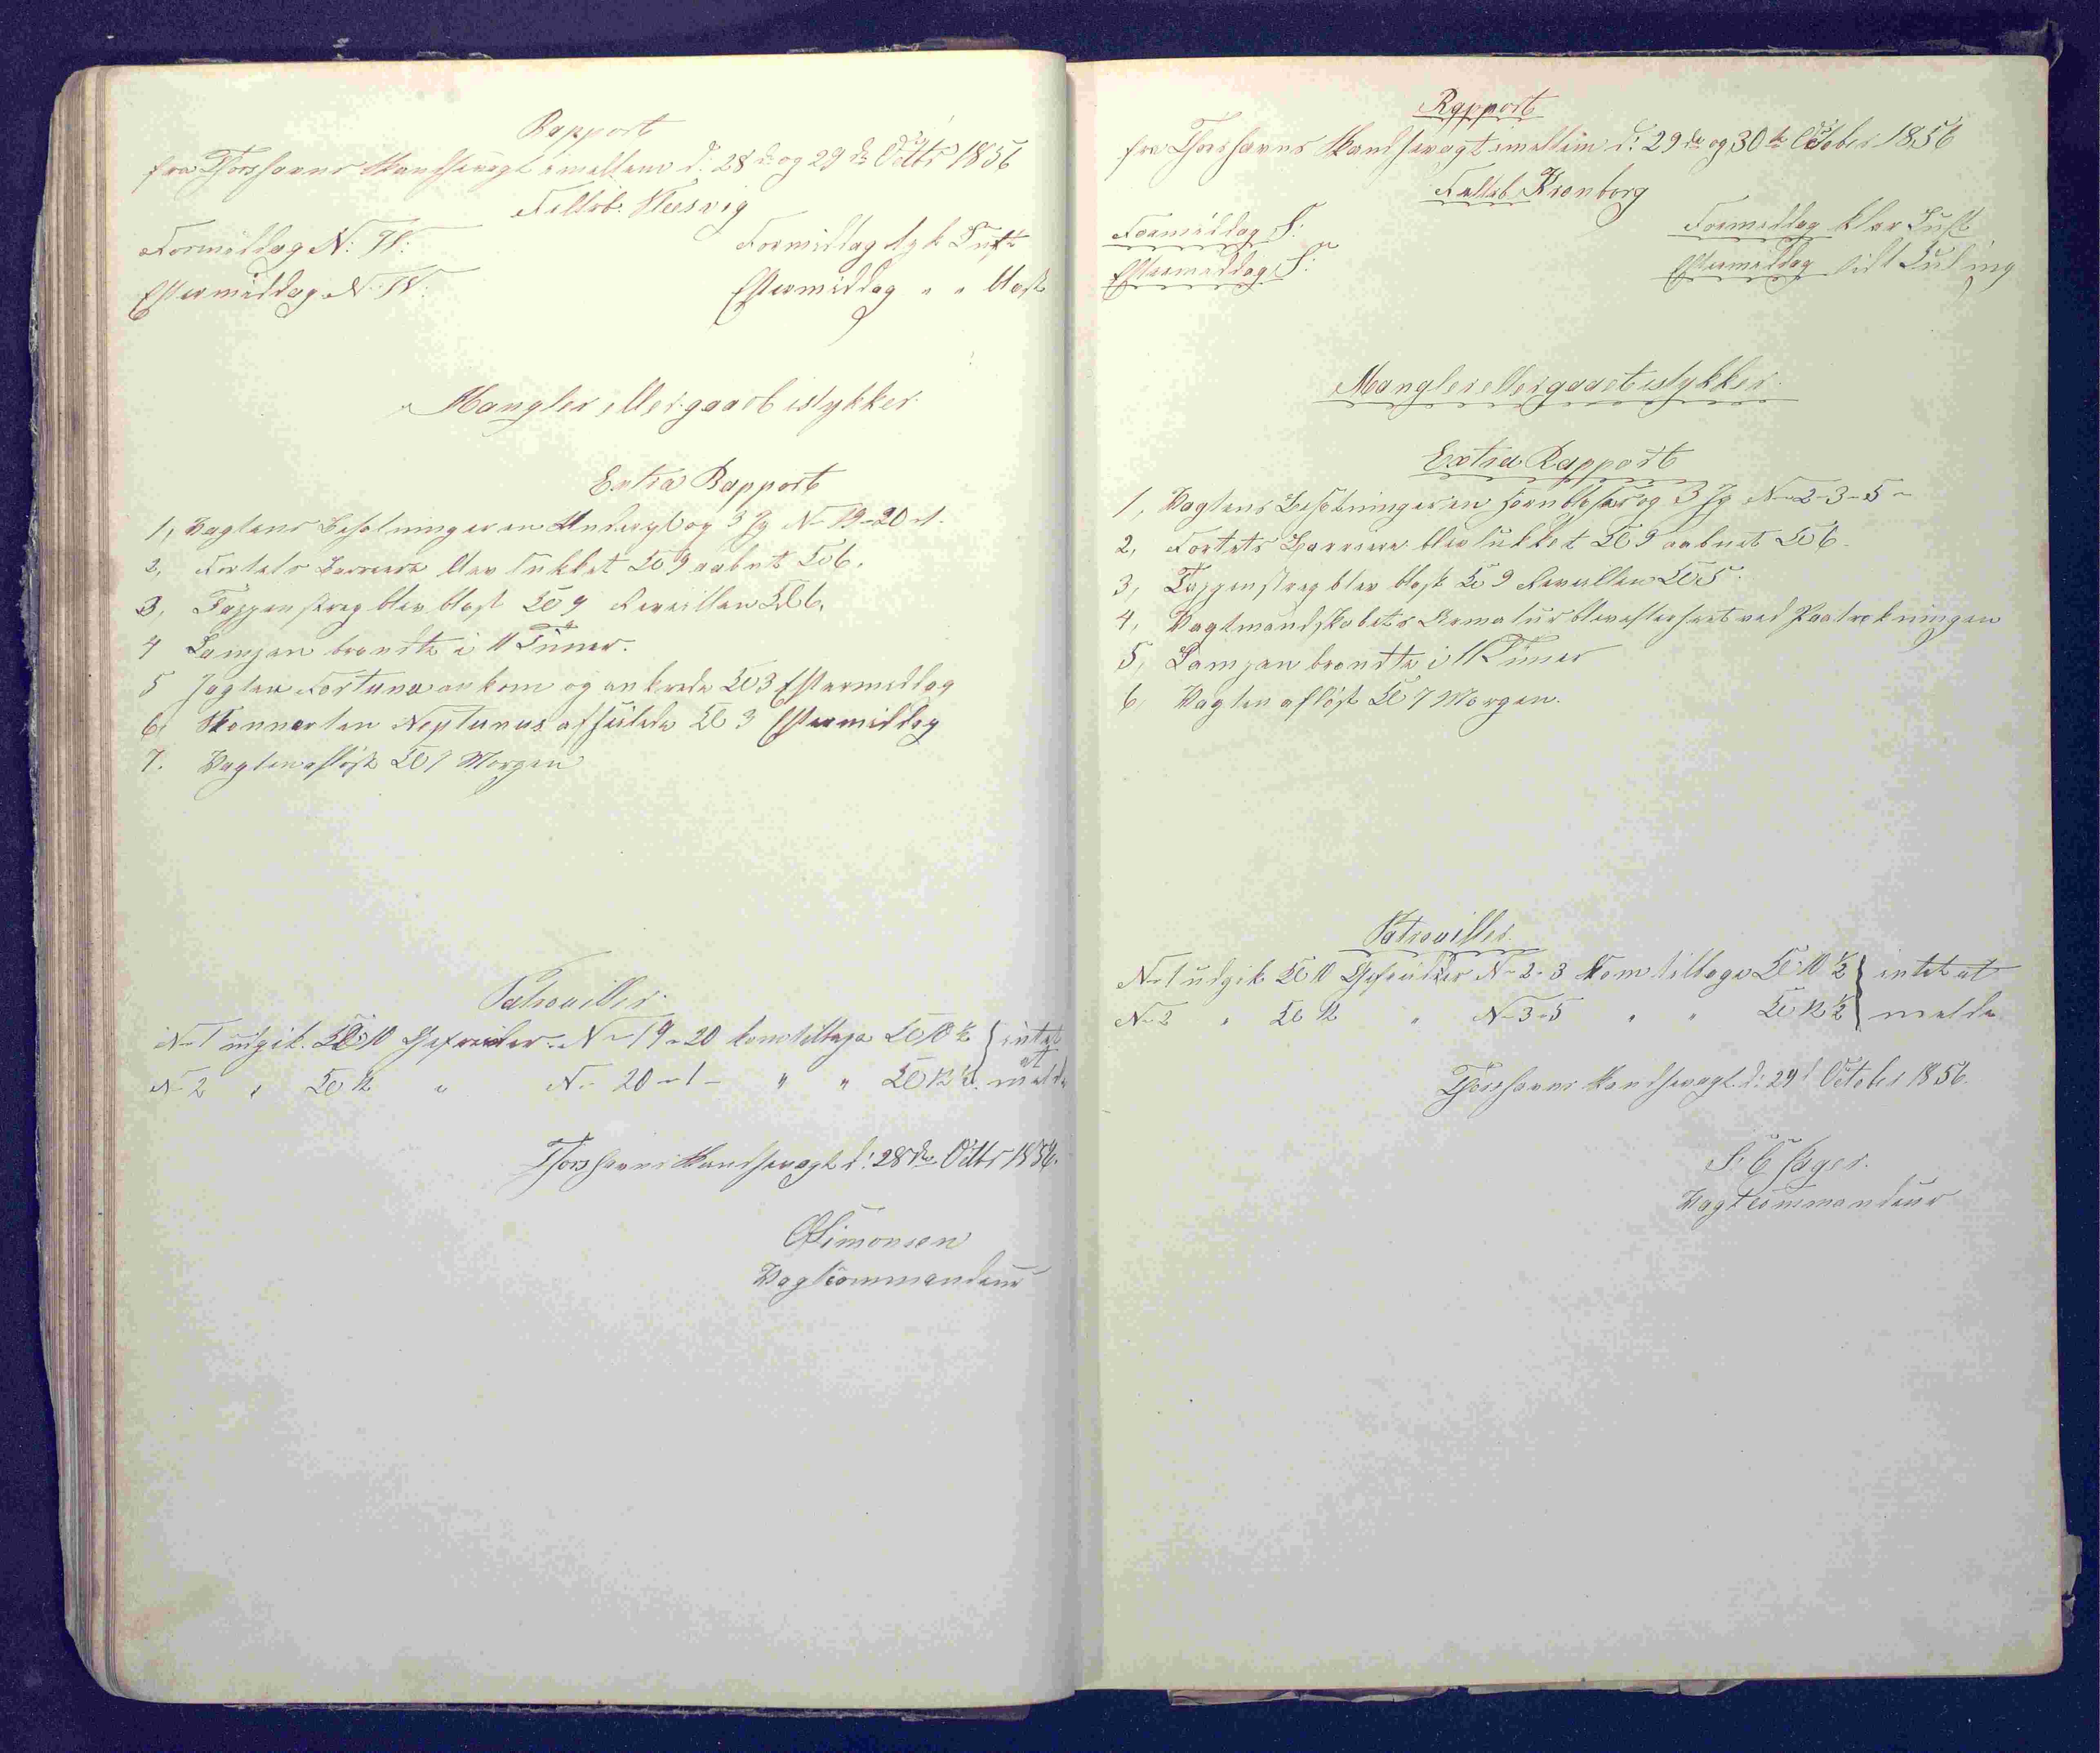 Rapport
fra Thorshavns Skandsevagt imellem d: 28de og 29de Octbr 1856
Feltrb: Heesvig
Formiddag N: W: Formiddag tyk Luft
Eftermiddag N: W: Eftermiddag " " blæst
Mangler eller gaaet istykker.
Extra Rapport
1, Vagtens Besætninger en Underjxl og 3 Jg No 19-20-1.
2, Fortets Barriere blev lukket Kl 9 aabnet Kl 6.
3, Tappenstreg blev blæst Kl 9 Reveillen Kl 6.
4 Lampen brændte i 11 Timer.
5 Jagten Fortuna ankom og ankrede Kl 3 Eftermiddag
6, Skonnerten Neptunus afseilede Kl 3 Eftermiddag
7. Vagten afløst Kl 7 Morgen
Patrouiller.
No 1 udgik Kl 10 Gefreider No 19-20 kom tilbage Kl 10½ } intet at
No 2 " Kl 12 " No 20-1- " " Kl 12½ } melde
Thorshavns Skandsevagt d: 28de Octbr 1856.
Simonsen
Vagtcommandeur
Rapport
fra Thorshavns Skandsevagt imellem d: 29de og 30te October 1856
Feltrb Kronborg
Formiddag S: Formiddag klar Luft
Eftermiddag S: Eftermiddag lidt Kuling
Mangler eller gaaet istykker.
Extra Rapport
1, Vagtens Besætninger en Hornblæser og 3 Jg No 2-3-5-
2, Fortets Barriere blev lukket Kl 9 aabnet Kl 6.
3, Tappenstreg blev blæst Kl 9 Reveillen Kl 5.
4, Vagtmandskabets Armatur blev efterseet ved Paatrækningen
5, Lampen brændte i 11 Timer
6, Vagten afløst Kl 7 Morgen.
Patrouiller.
No 1 udgik Kl 10 Gefreider No 2-3 kom tilbage Kl 10½ } intet at
No 2 " Kl 12 " No 3-5 " " Kl 12½ } melde
Thorshavns Skandsevagt d: 29d October 1856.
Vagtcommandeur